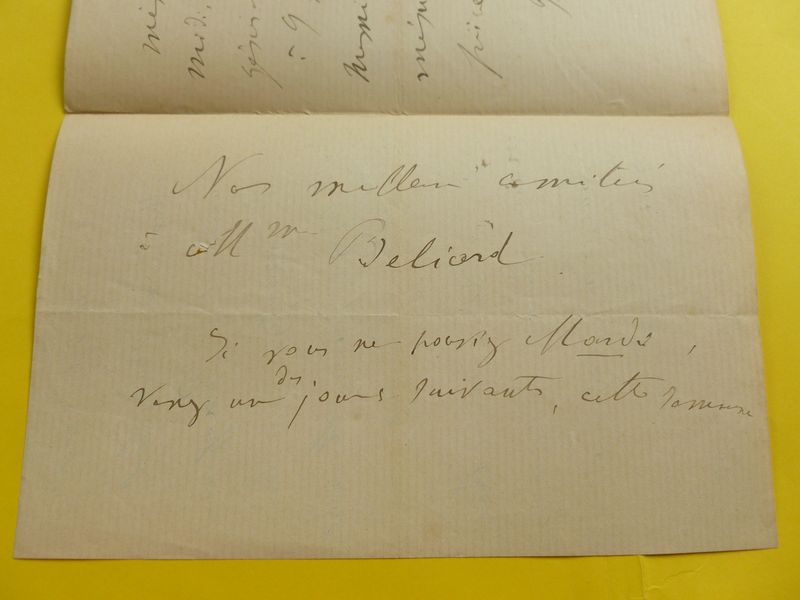 Nos meilleurs amitiés
à M me Beliard
Si vous ne pouvez Mardi,
venez un des jours suivants, cette semaine